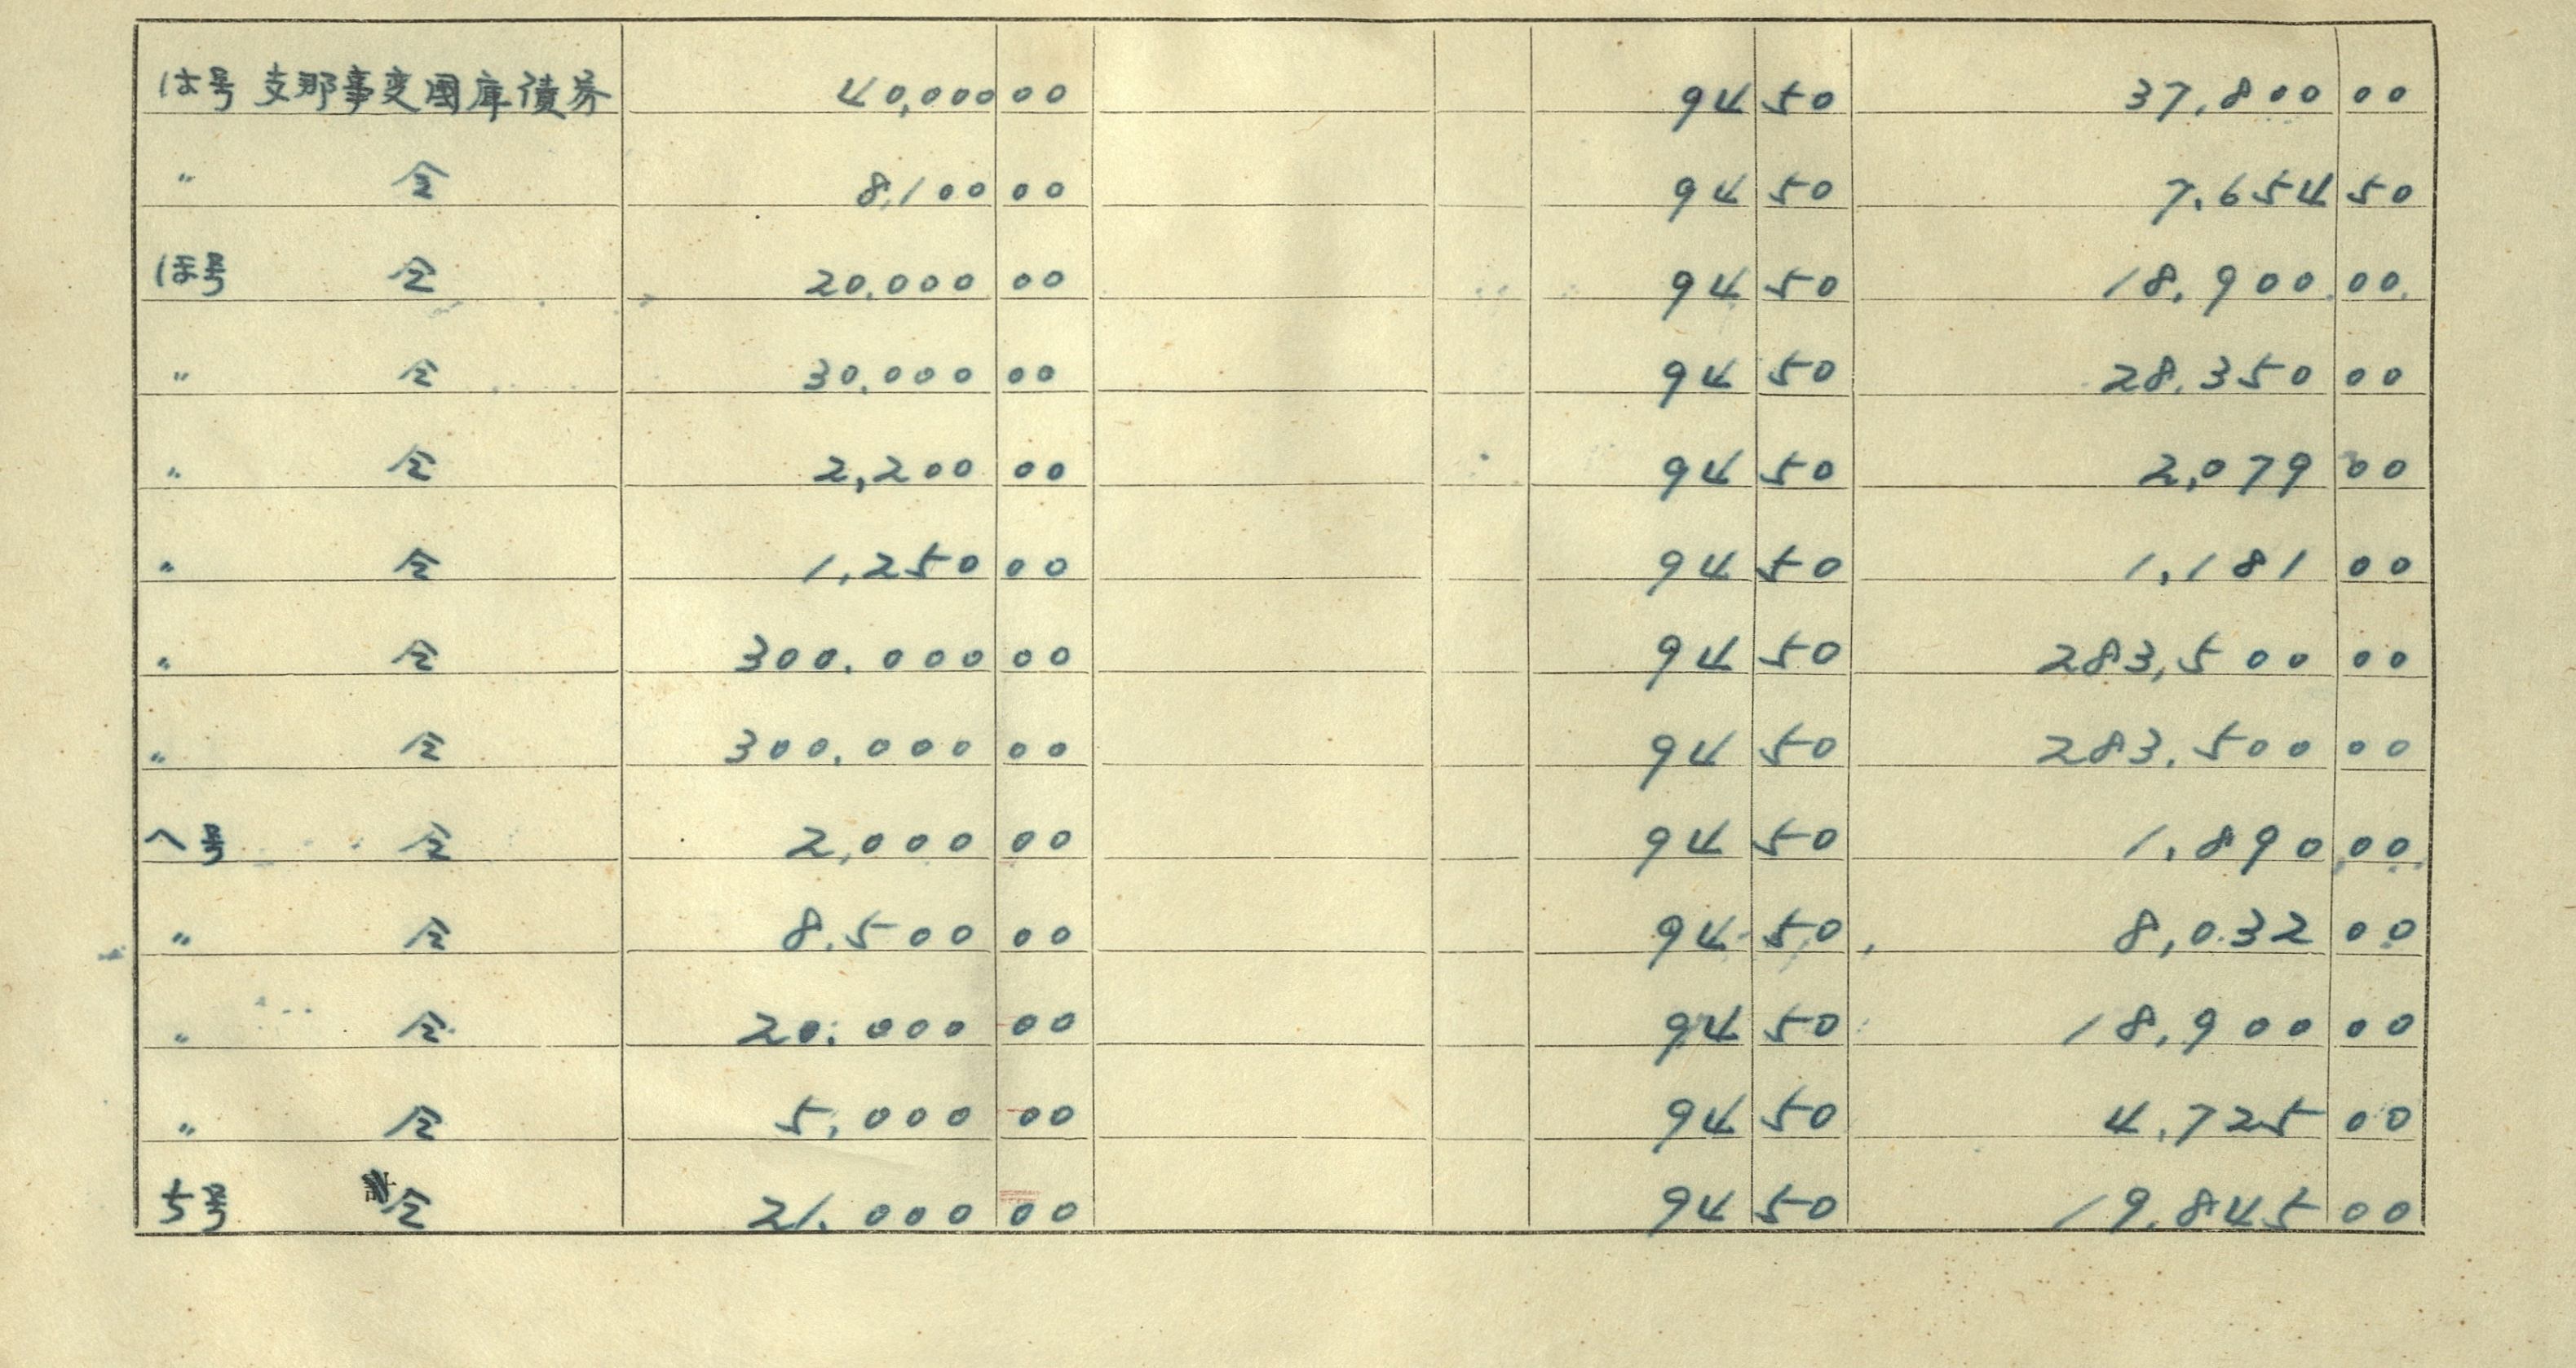 は号 支那事変國庫債券 40,000 00 94 50 37,800 00
〃 仝 8,100 00 94 50 7,654 50
ほ号 仝 20,000 00 94 50 18,900 00
〃 仝 30,000 00 94 50 28,350 00
〃 仝 2,200 00 94 50 2,079 00
〃 仝 1,250 00 94 50 1,181 00
〃 仝 300,000 00 94 50 283,500 00
〃 仝 300,000 00 94 50 283,500 00
へ号 仝 2,000 00 94 50 1,890 00
〃 仝 8,500 00 94 50 8,032 00
〃 仝 20,000 00 94 50 18,900 00
〃 仝 5,000 00 94 50 4,725 00
ち号 仝 21,000 00 94 50 19,845 00